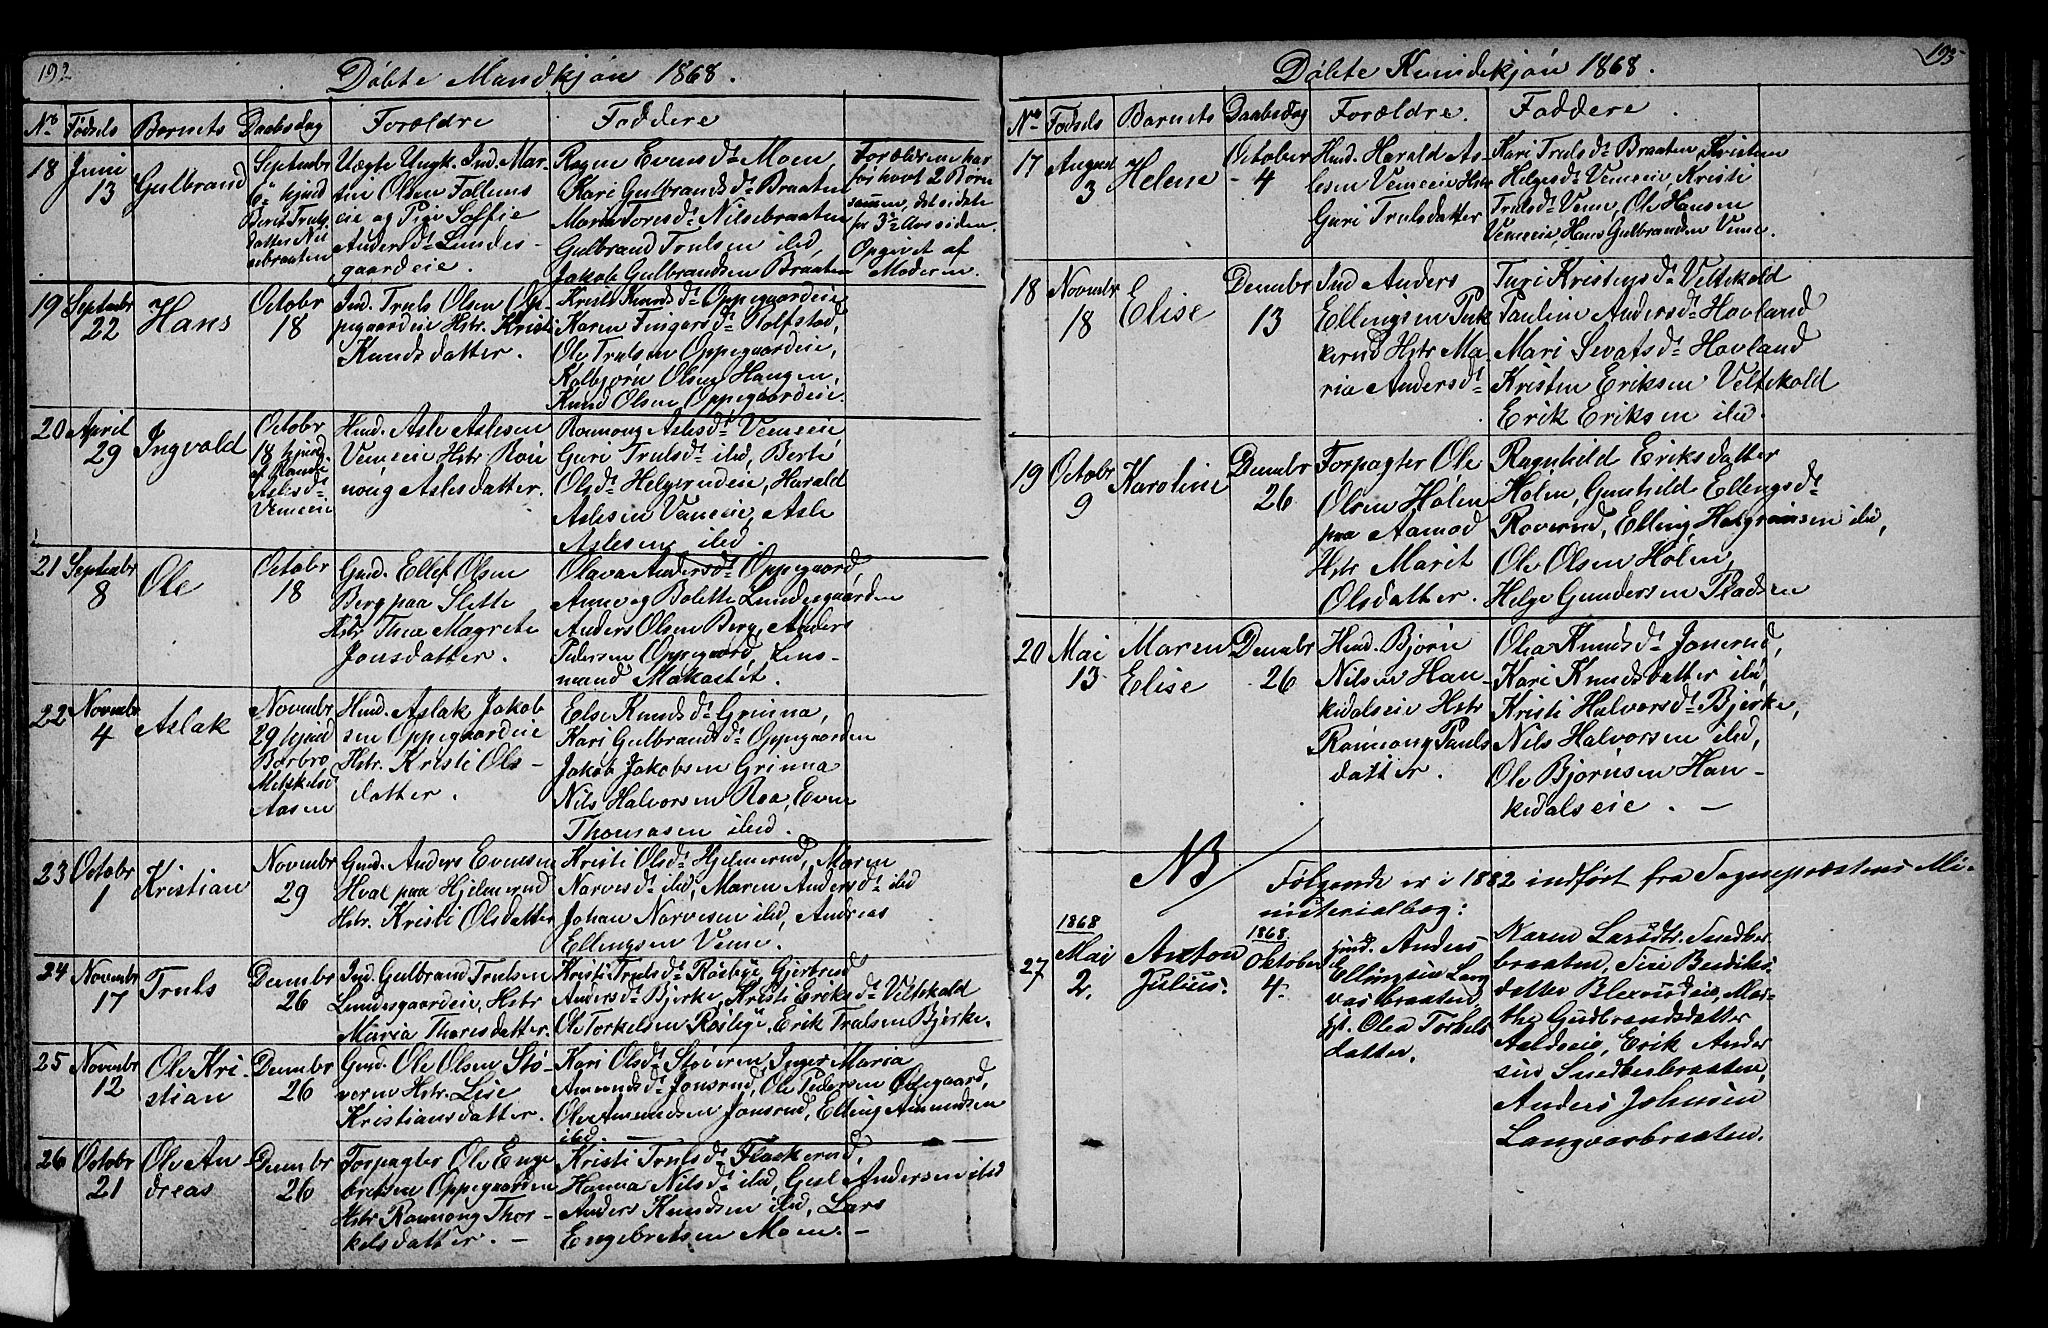 192
Døbte Mandkjøn 1868.
No Fødsels Barnets Daabsdag Forældre Faddere
18 Juni 13 Gulbrand
Septembr 6te hjmd Berit Truls datter Nil sebraaten
Uægte Ungk. Ind. Mar-
tin Olsen Follums
eie og Pige Soffie
Andersdr Lundes-
gaardeie.
Ragne Evensdr Moen,
Kari Gulbrandsdr Braaten
Maria Toresdr Nilsebraaten
Gulbrand Trulsen ibid,
Jakob Gulbrandsen Braaten
Forældrene har
før havt 2 Børn
sammen, det sidste
for 3 Aar siden.
Opgivet af
Moderen.
19 Septembr 22 Hans
Octobr 18
Ind. Truls Olsen Op-
pegaardeie Hstr. Kristi
Knudsdatter.
Kristi Knudsdr Oppegaardeie
Karen Fingarsdr Rolfstad,
Ole Trulsen Oppegaardeie,
Kolbjørn Olsen Haugen,
Knud Olsen Oppegaardeie.
20 April 29 Ingvald
Octobr 18 hjmd. af Rande Aslesdr Vemeeie
Husd. Asle Aslesen
Vemeeie Hstr Ron
noug Aslesdatter.
Ronnong Aslesdr Vemeeie
Guri Trulsdr ibid, Berte
Olsdr Helgerudeie, Harald
Aslesen Vemeeie, Asle
Aslesen ibid.
21 Septembr 8 Ole
Octobr 18
Gmd. Ellef Olsen
Berg paa Slette
Hstr Thea Magrete
Jonsdatter.
Olava Andersdr Oppegaard,
Anne og Bolette Lundesgaarden
Anders Olsen Berg, Anders
Pedersen Oppegaard, Lens-
mand Makastet.
22 Novembr 4 Aslak
Novembr 29 hjmd Barbro Mikkelsd Aasen
Husd. Aslak Jakob
sen Oppegaardeie
Hstr. Kristi Ols-
datter.
Else Knudsdr Grinna,
Kari Gulbrandsdr Oppegaarden
Jakob Jakobsen Grinna
Nils Halvorsen Roa, Even
Thomasen ibid.
23 Octobr 1 Kristian
Novembr 29
Gmd. Anders Evensen
Hval paa Hjelmerud
Hstr. Kristi Olsdatter
Kristi Olsdr Hjelmerud, Maren
Narvesdr ibid, Maren Andersdr ibid
Johan Narvesen ibid, Andreas
Ellingsen Veme.
24 Novembr 17 Truls
Decembr 26
Ind. Gulbrand Trulsen
Lundesgaardeie, Hstr
Maria Thoresdatter.
Kristi Trulsdr Røsbye, Gjerbrud
Andersdr Bjerke, Kristi Eriksdr Veltekold
Ole Torkelsen Røsbye, Erik Trulsen Bjerke.
25 Novembr 12 Ole Kri-
stian
Decembr 26
Gmd. Ole Olsen Stø-
veren Hstr. Lise
Kristiansdatter.
Kari Olsdr Støveren, Inger Maria
Amundsdr Jonsrud, Ole Pedersen Opegaard,
Ole Amundsen Jonsrud, Elling Amundsen
ibid.
26 Octobr 21 Ole An-
dreas
Decembr 26
Forpagter Ole Enge
bretsen Oppegaarden
Hstr Ronnong Thor-
kelsdatter.
Kristi Trulsdr Flaskerud,
Hanna Nilsdr ibid, Gisl Andersen ibid
Anders Knudsen ibid, Lars
Engebretsen Moen.
193
Døbte Kvindekjøn 1868.
No Fødsels Barnets Daabsdag Forældre. Faddere.
17 August 3 Helene
October 4
Husd. Harald As-
lesen Vemeeie Hstr
Guri Trulsdatter
Kari Trulsdr Braaten, Kristine
Helgesdr Vemeeie Kristi
Trulsdr Veme, Ole Hansen
Vemeeie, Hans Gulbrandsen Veme.
18 Novembr 18 Elise
Decembr 13
Ind Anders
Ellingsen Puk
kerud Hstr Ma-
ria Andersdr
Turi Kristensdr Veltekold
Pauline Andersdr Hovland
Mari Sevatsdr Hovland
Kristen Eriksen Veltekold
Erik Eriksen ibid.
19 Octobr 9 Karoline
Decembr 26
Forpagter Ole
Olsen Holen
paa Aamod
Hstr Marit
Olsdatter.
Ragnhild Eriksdatter
Holen, Gunhild Ellingsdr
Roverud, Elling Halgrimsen ibid,
Ole Olsen Holen,
Helge Gundersen Pladsen
20 Mai 13 Maren
Elise
Decembr 26
Husd. Bjørn
Nilsen Han-
kedalseie Hstr
Ronnong Pauls
datter.
Olia Knudsdr Jonsrud,
Kari Knudsdatter ibid,
Kristi Halvorsdr Bjerke,
Nils Halvorsen ibid,
Ole Bjørnsen Han-
kedalseie.
NB/
Følgende er i 1882 indført fra Sognepræstens Mi-
nisterialbog:
27 1868 Mai 2. Anton
Julius.
1868 Oktober 4.
Husd. Anders
Ellingsen Lang
vasbraaten,
Hst. Olea Torkels
datter.
Karen Larsdtr. Snedker
braaten, Siri Bendiks-
datter Blexrudeie, Mar-
the Gudbrandsdatter
Aaldseie, Erik Ander
sen Snedkerbraaten,
Anders Johnsen
Langvasbraaten.